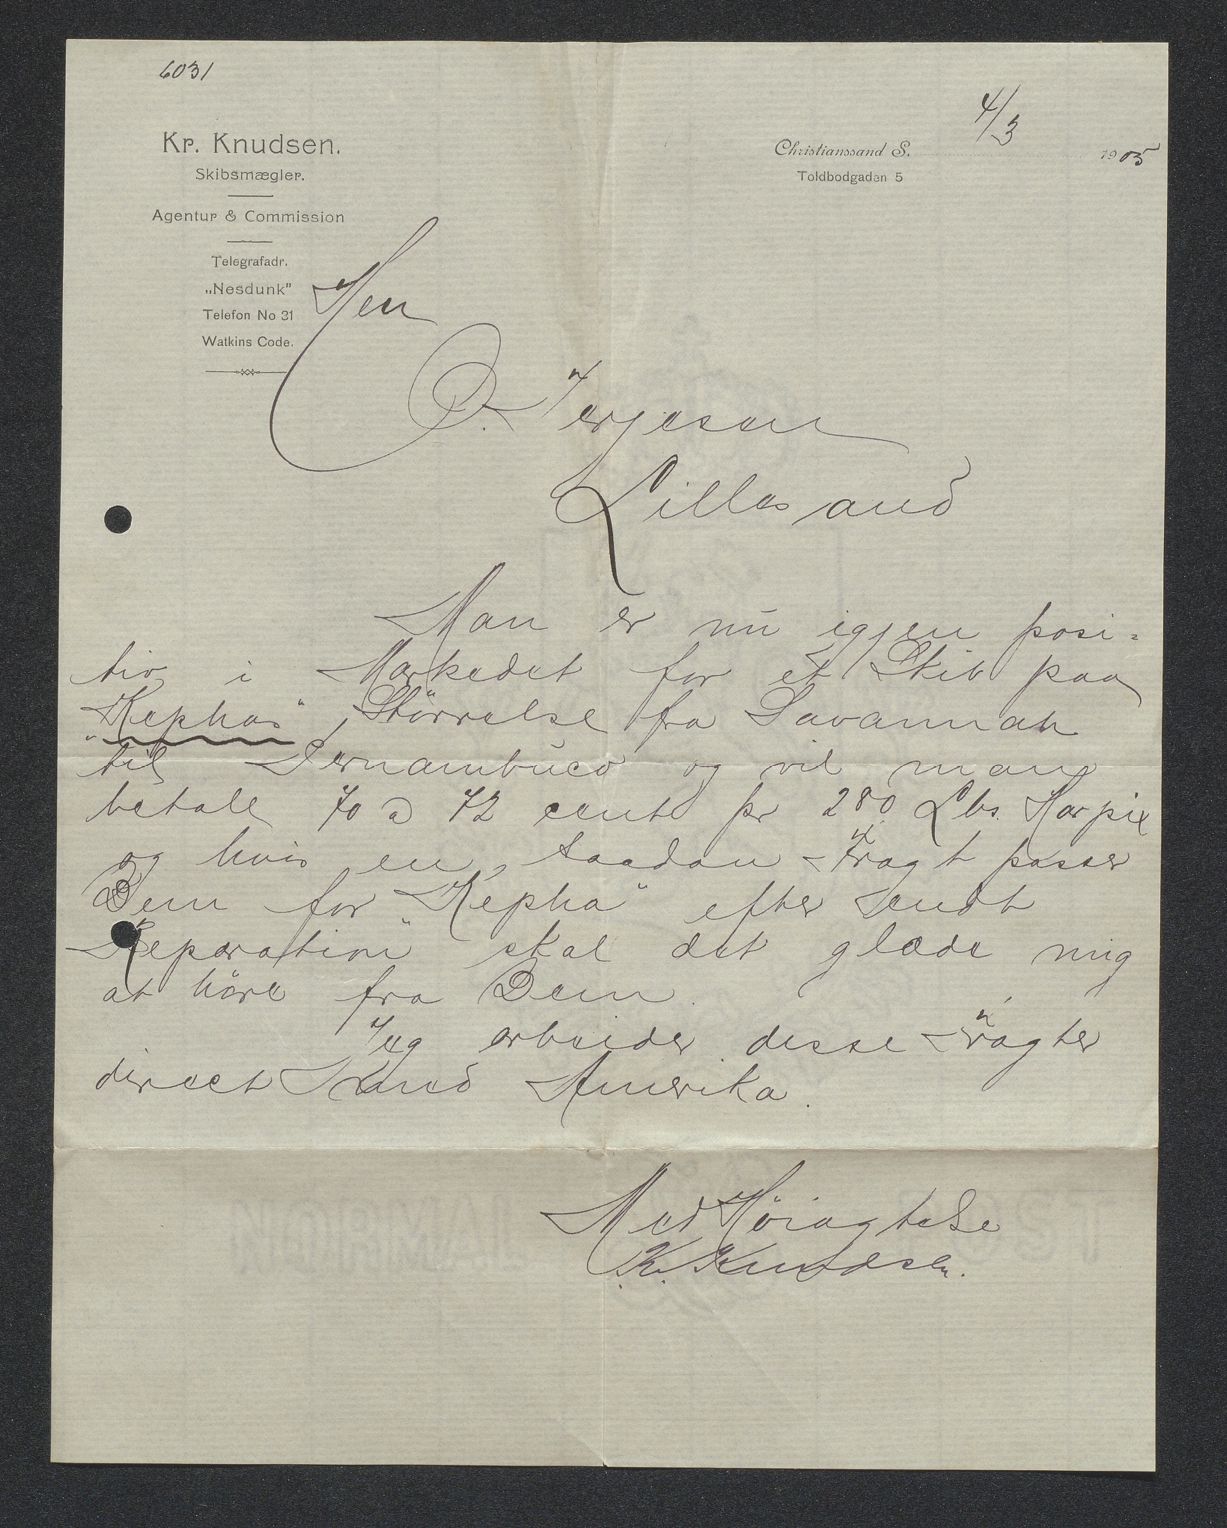 6031
Kr. Knudsen.
Skibsmægler.
Agentur & Commission
Telegrafadr.
„Nesdunk"
Telefon No 31
Watkins Code.
Christianssand S. 4/3 1905
Toldbodgaden 5
Herr
O. Terjesen
Lillesand
Man er nu igjen posi-
tiv i Markedet for et Skib paa
"Kephas" Størrelse fra Savannah
til Pernambuco og vil man
betale 70 a 72 cent pr 280 Lbs. Harpix
og hvis en saadan Fragt passer
Dem for "Kepha" efter endt
Reparation skal det glæde mig
at høre fra Dem.
Jeg arbeider disse Fragter
direct med Amerika.
Med Høiagtelse
Kr. Knudsen.